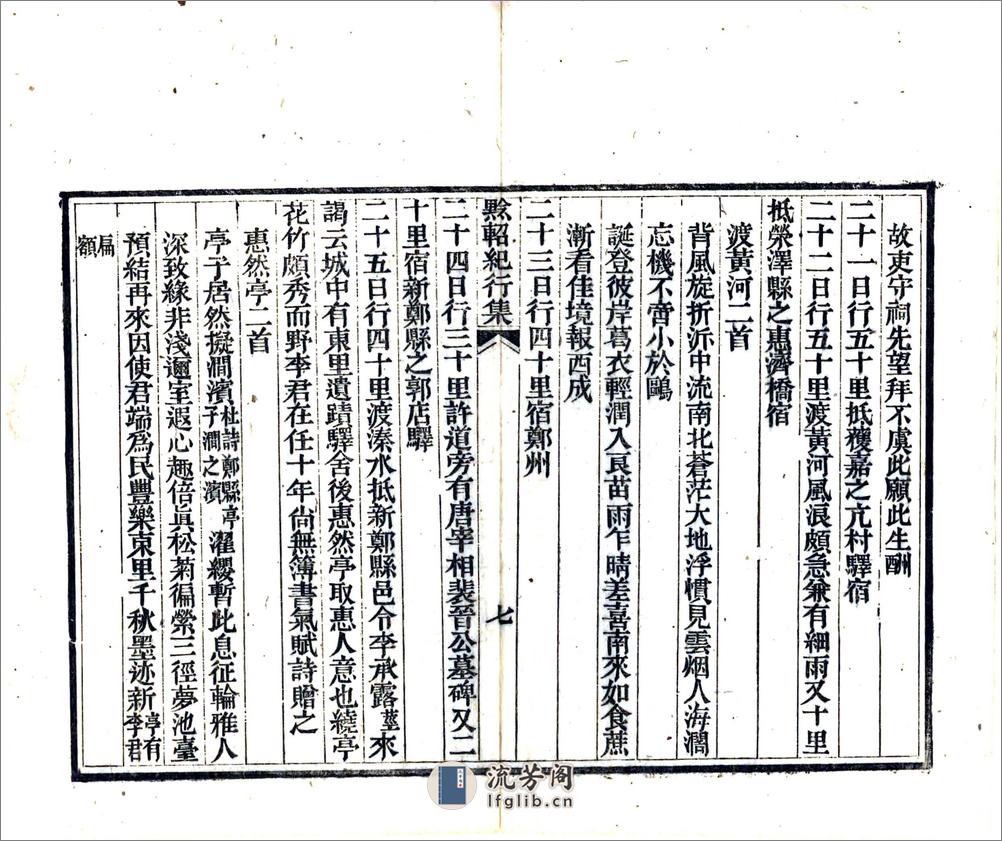 故吏守祠先望拜不虞此願此生酬
二十一日行五十里抵穫嘉之亢村驛宿
二十二日行五十里渡黃河風浪頗急兼有細雨又十里
抵榮澤縣之惠濟橋宿
渡黃河二首
背風旋折泝中流南北蒼茫大地浮慣見雲烟人海濶
忘機不啻小於鷗
誕登彼岸葛衣輕潤入良苗雨乍晴差喜南來如食蔗
漸看佳境報西成
二十三日行四十里宿鄭州
黔軺紀行集
七
二十四日行三十里許道旁有唐宰相裴晉公墓碑又二
十里宿新鄭縣之郭店驛
二十五日行四十里渡溱水抵新鄭縣邑令李承露莖來
謁云城中有東里遺蹟驛舍後惠然亭取惠人意也繞亭
花竹頗秀而野李君在任十年尚無簿書氣賦詩贈之
惠然亭二首
亭子居然擬澗濱杜詩鄭縣亭子澗之濱濯纓暫此息征輪雅人
深致緣非淺邇室遐心趣倍眞松菊徧縈三徑夢池臺
預結再來因使君端爲民豐樂東里千秋墨迹新亭有李君
扁額
流芳阁
lfglib.cn